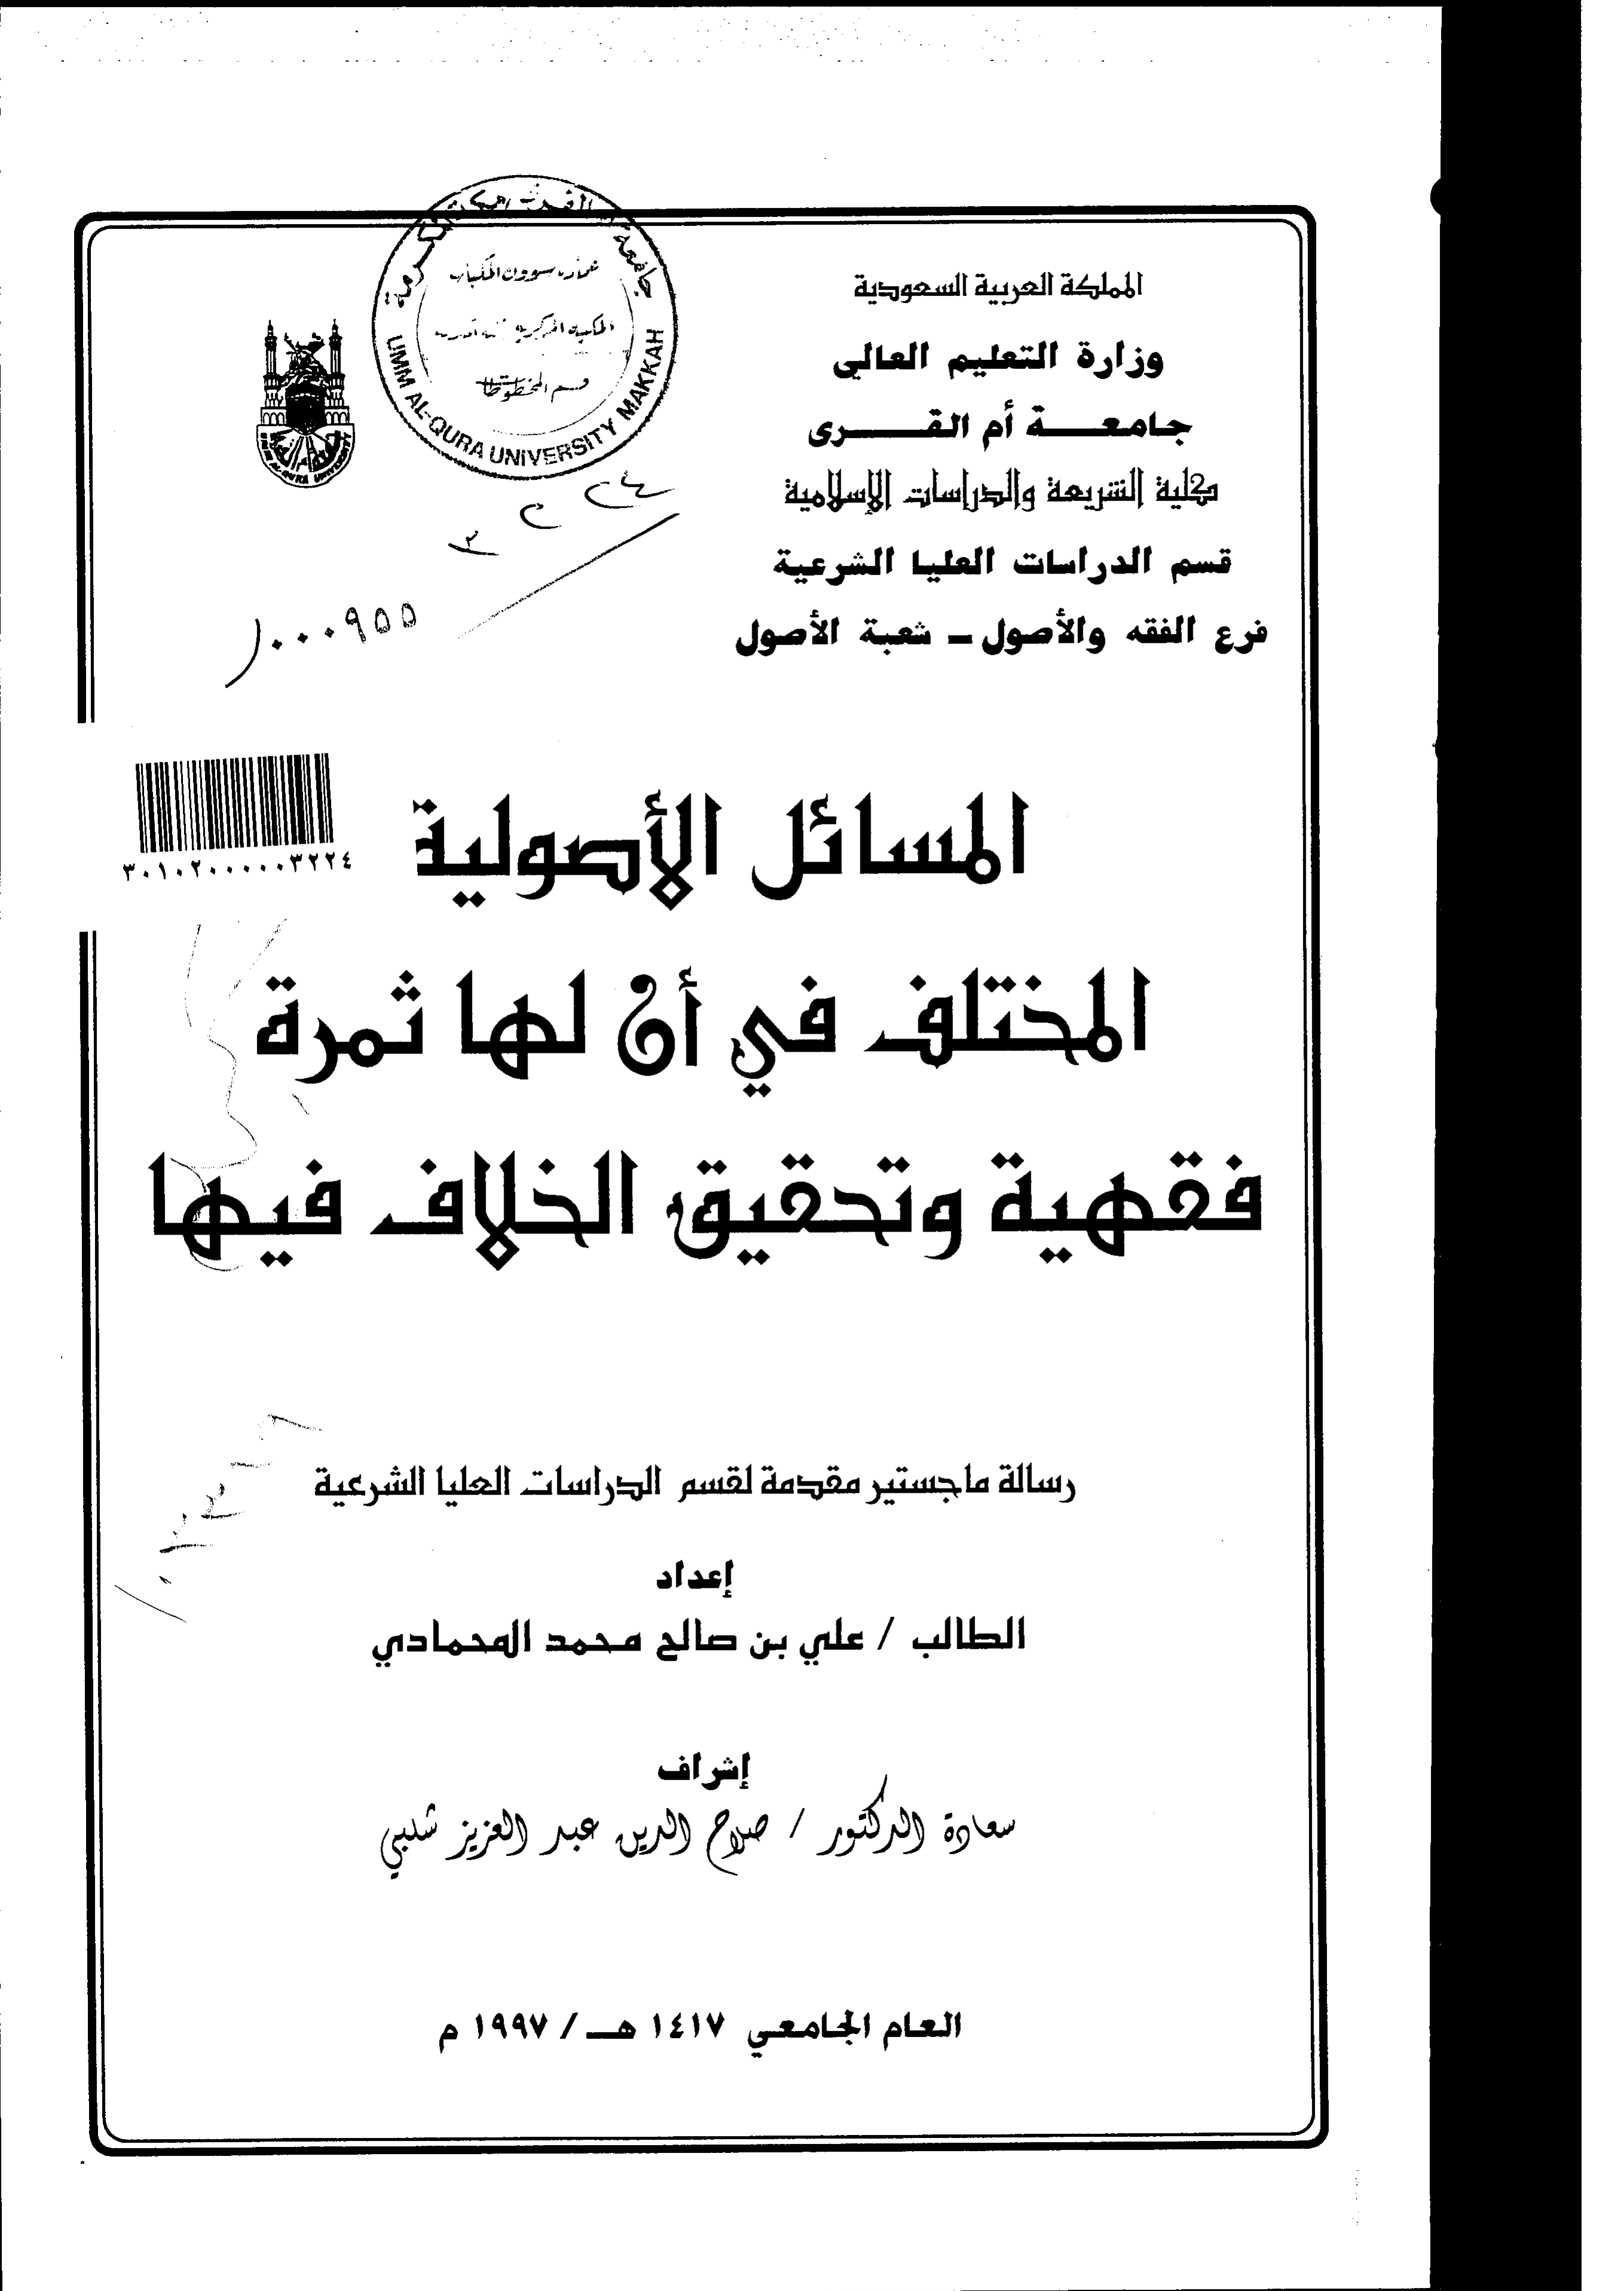 المملكة العربية السعودية
وزارة التعليم العالي
جامعـــة أم القـــرى
كلية الشريعة والدراسات الإسلامية
قسم الدراسات العليا الشرعية
فرع الفقه والأصول ـ شعبة الأصول
المكتبة المركزية
قسم المخطوطات
UMM AL-QURA UNIVERSITY MAKKAH
١٠٠٠٩٥٥
٣٠١٠٢٠٠٠٠٠٣٢٢٤
المسائل الأصولية
المختلف في أن لها ثمرة
فقهية وتحقيق الخلاف فيها
رسالة ماجستير مقدمة لقسم الدراسات العليا الشرعية
إعداد
الطالب / علي بن صالح محمد المحمادي
إشراف
سعادة الدكتور / صلاح الدين عبد العزيز شلبي
العام الجامعي ١٤١٧ هـ / ١٩٩٧ م